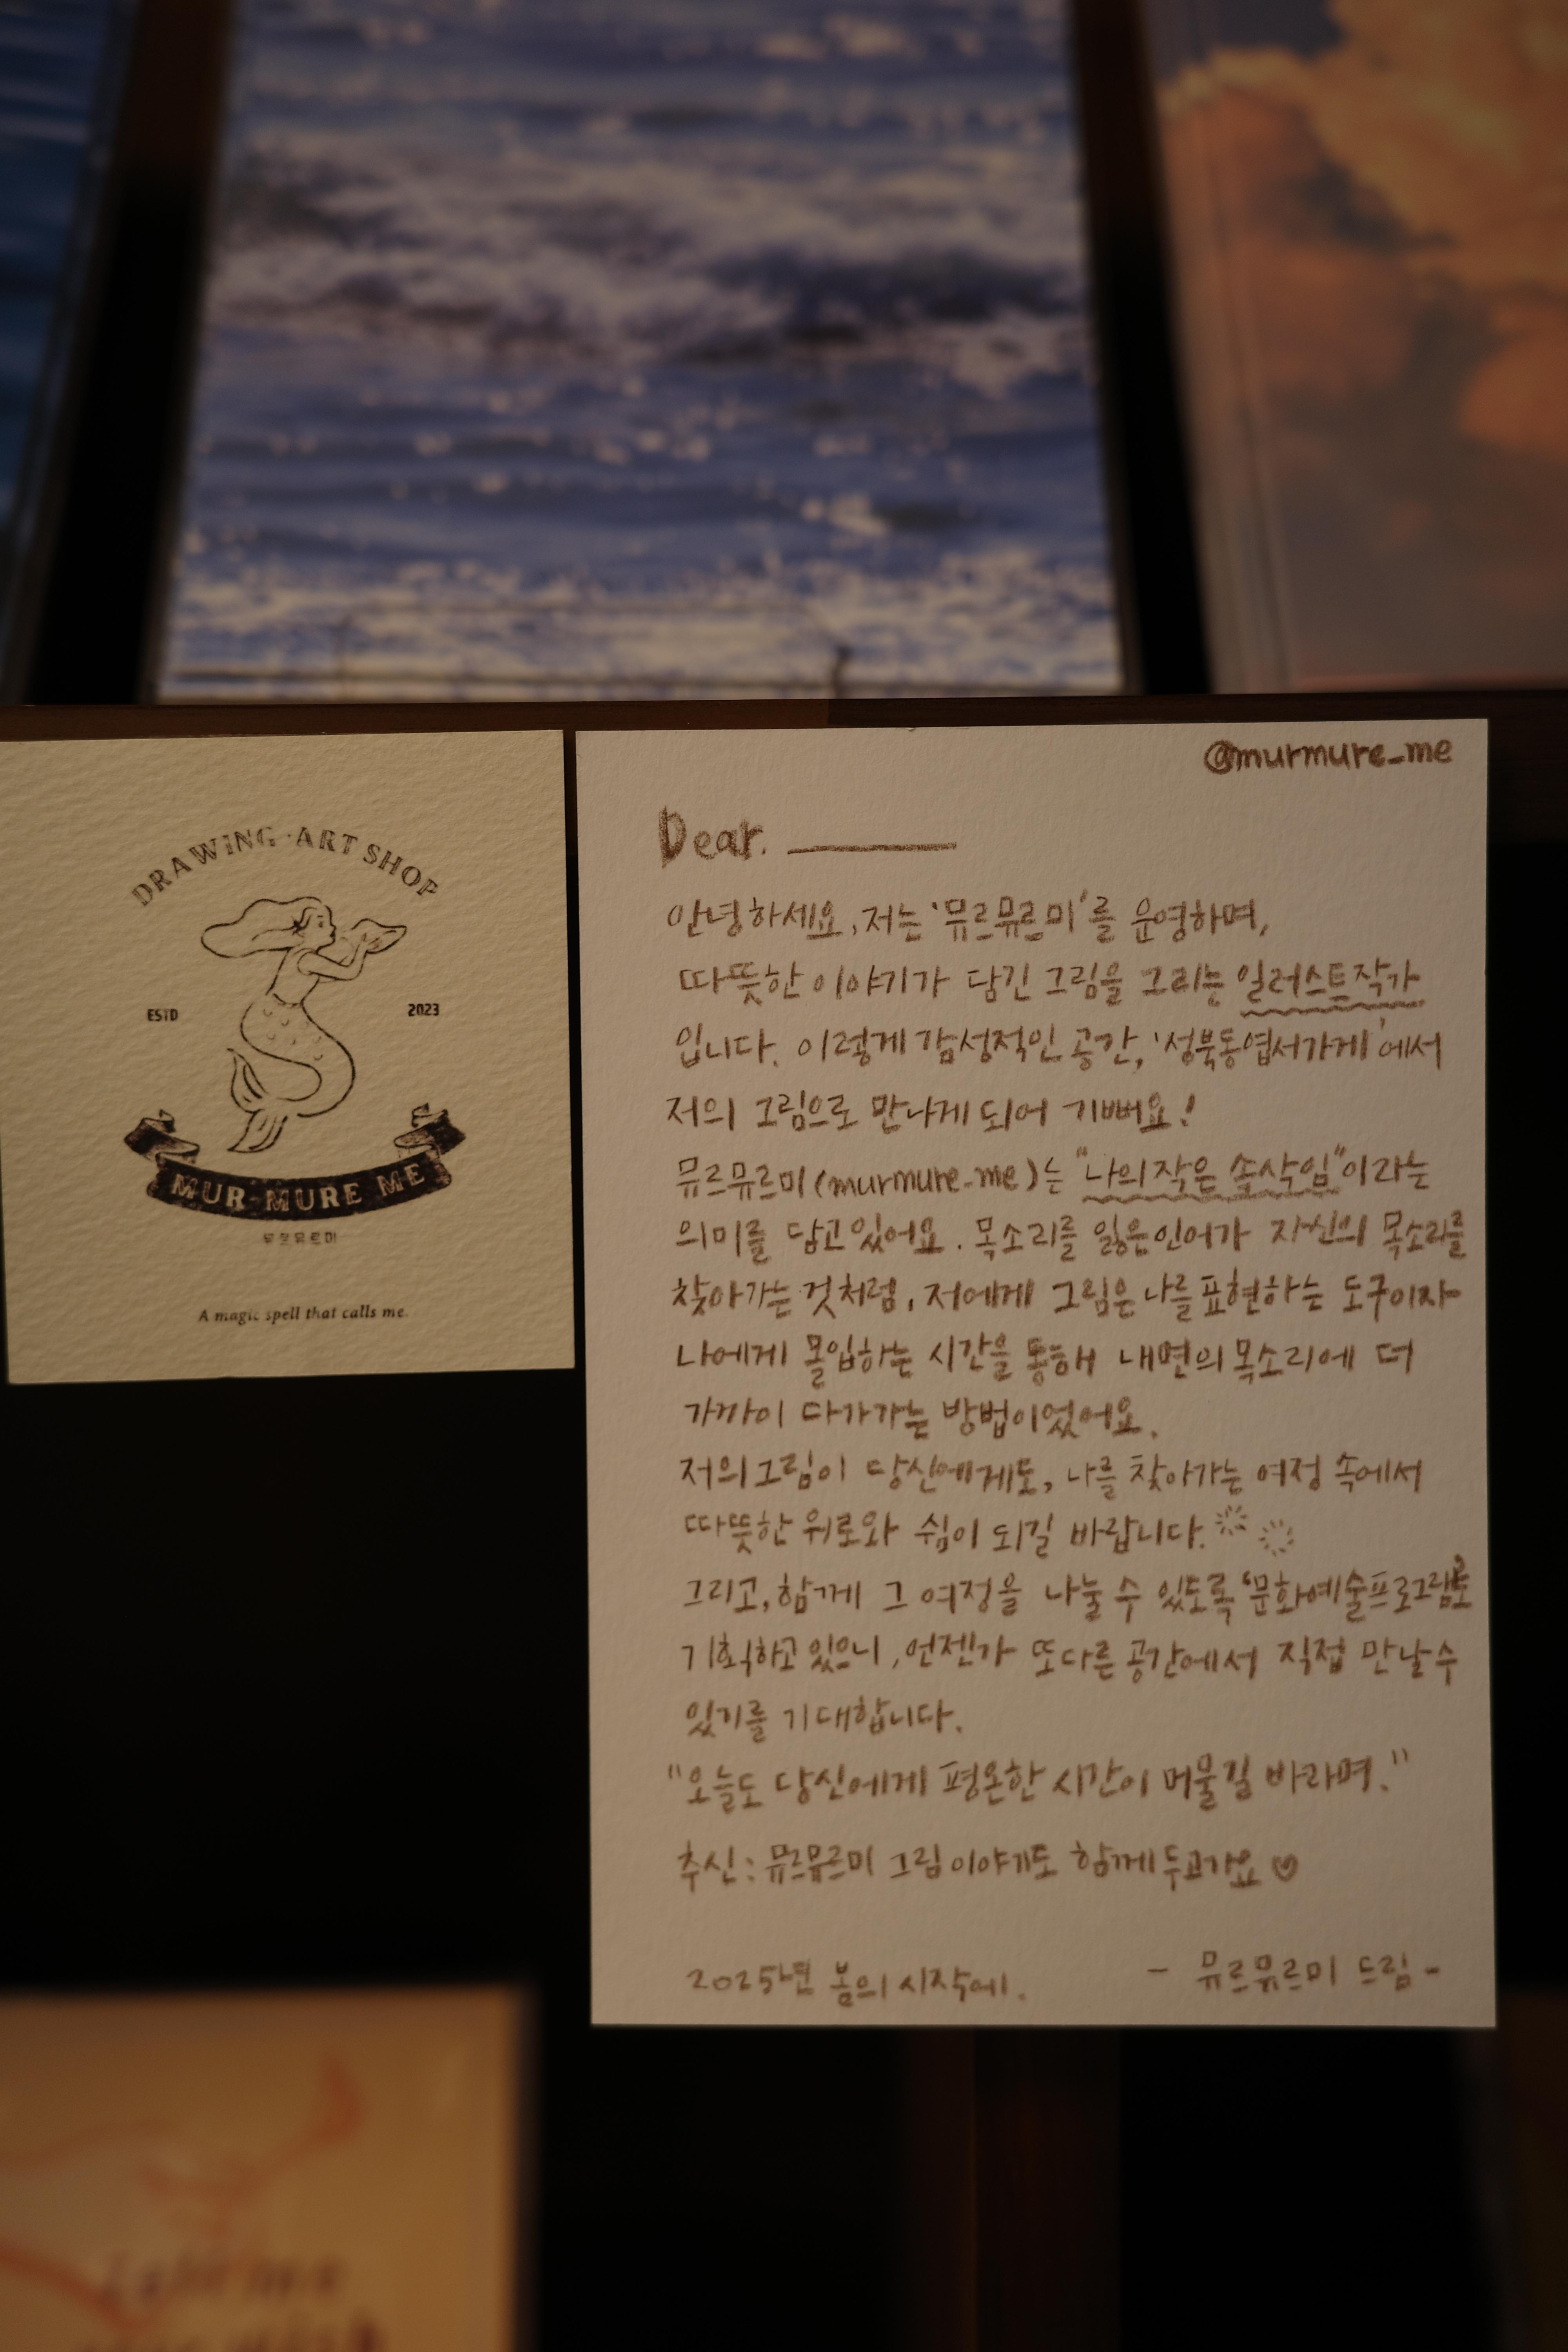 DRAWING·ART SHOP
ESTD 2023
MUR-MURE ME
뮤르뮤르미
A magic spell that calls me.
@murmure_me
Dear. ______
안녕하세요, 저는 '뮤르뮤르미'를 운영하며,
따뜻한 이야기가 담긴 그림을 그리는 일러스트작가
입니다. 이렇게 감성적인 공간, '성북동엽서가게'에서
저의 그림으로 만나게 되어 기뻐요!
뮤르뮤르미(murmure_me)는 "나의 작은 속삭임"이라는
의미를 담고 있어요. 목소리를 잃은 인어가 자신의 목소리를
찾아가는 것처럼, 저에게 그림은 나를 표현하는 도구이자
나에게 몰입하는 시간을 통해 내면의 목소리에 더
가까이 다가가는 방법이었어요.
저의 그림이 당신에게도, 나를 찾아가는 여정 속에서
따뜻한 위로와 쉼이 되길 바랍니다.
그리고, 함께 그 여정을 나눌 수 있도록 '문화예술프로그램'도
기획하고 있으니, 언젠가 또다른 공간에서 직접 만날 수
있기를 기대합니다.
"오늘도 당신에게 평온한 시간이 머물길 바라며."
추신: 뮤르뮤르미 그림이야기도 함께 두고가요♡
2025년 봄의 시작에. - 뮤르뮤르미 드림 -